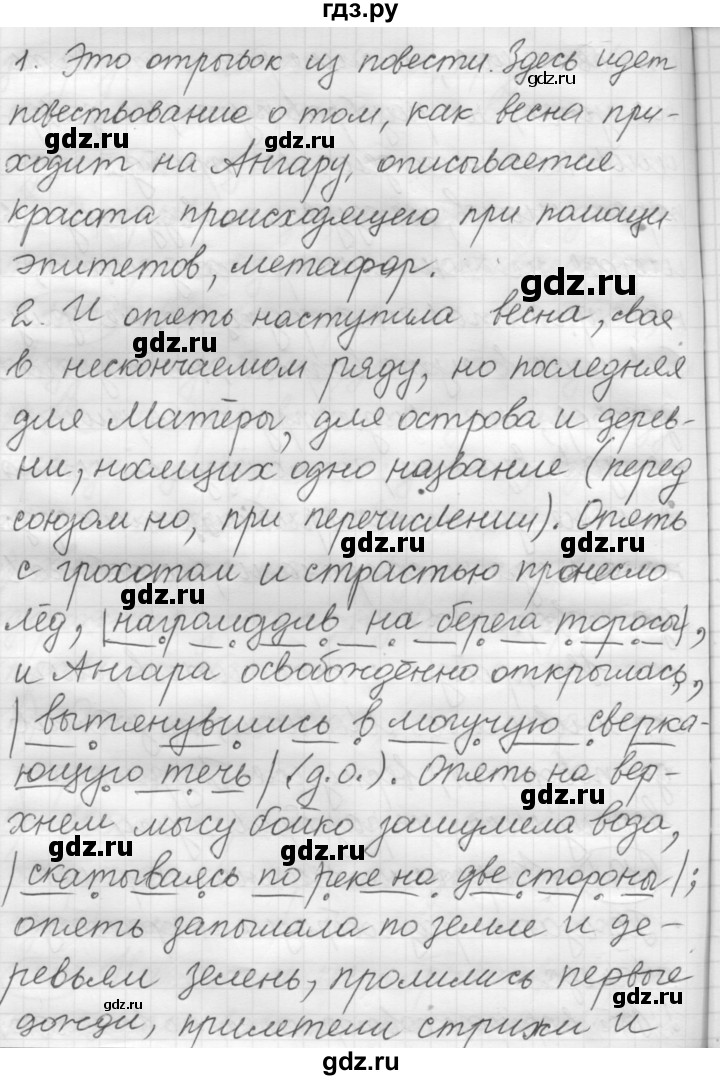 гдз.ру
1. Это отрывок из повести. Здесь идет
gdz.ru
повествование о том, как весна при-
gdz.ru
gdz.ru
ходит на Ангару, описывается
красота происходящего при помощи
эпитетов, метафор.
gdz.ru
2. И опять наступила весна, своя
gdz.ru
в нескончаемом ряду, но последняя
для Матёры, для острова и дерев-
ни, носящих одно название (перед
союзом но, при перечислении). Опять
gdz.ru
gdz.ru
с грохотом и страстью пронесло
gdz.ru
лёд, |нагромоздив на берега торосы|,
и Ангара освобождённо открылась,
|вытянувшись в могучую сверка-
ющую течь| (д.о.). Опять на вер-
gdz.ru
gdz.ru
хнем мысу бойко зашумела вода,
gdz.ru
gdz.ru
|скатываясь по реке на две стороны|;
опять запылала по земле и де-
ревьям зелень, пролились первые
gdz.ru
gdz.ru
дожди, прилетели стрижи и
gdz.ru